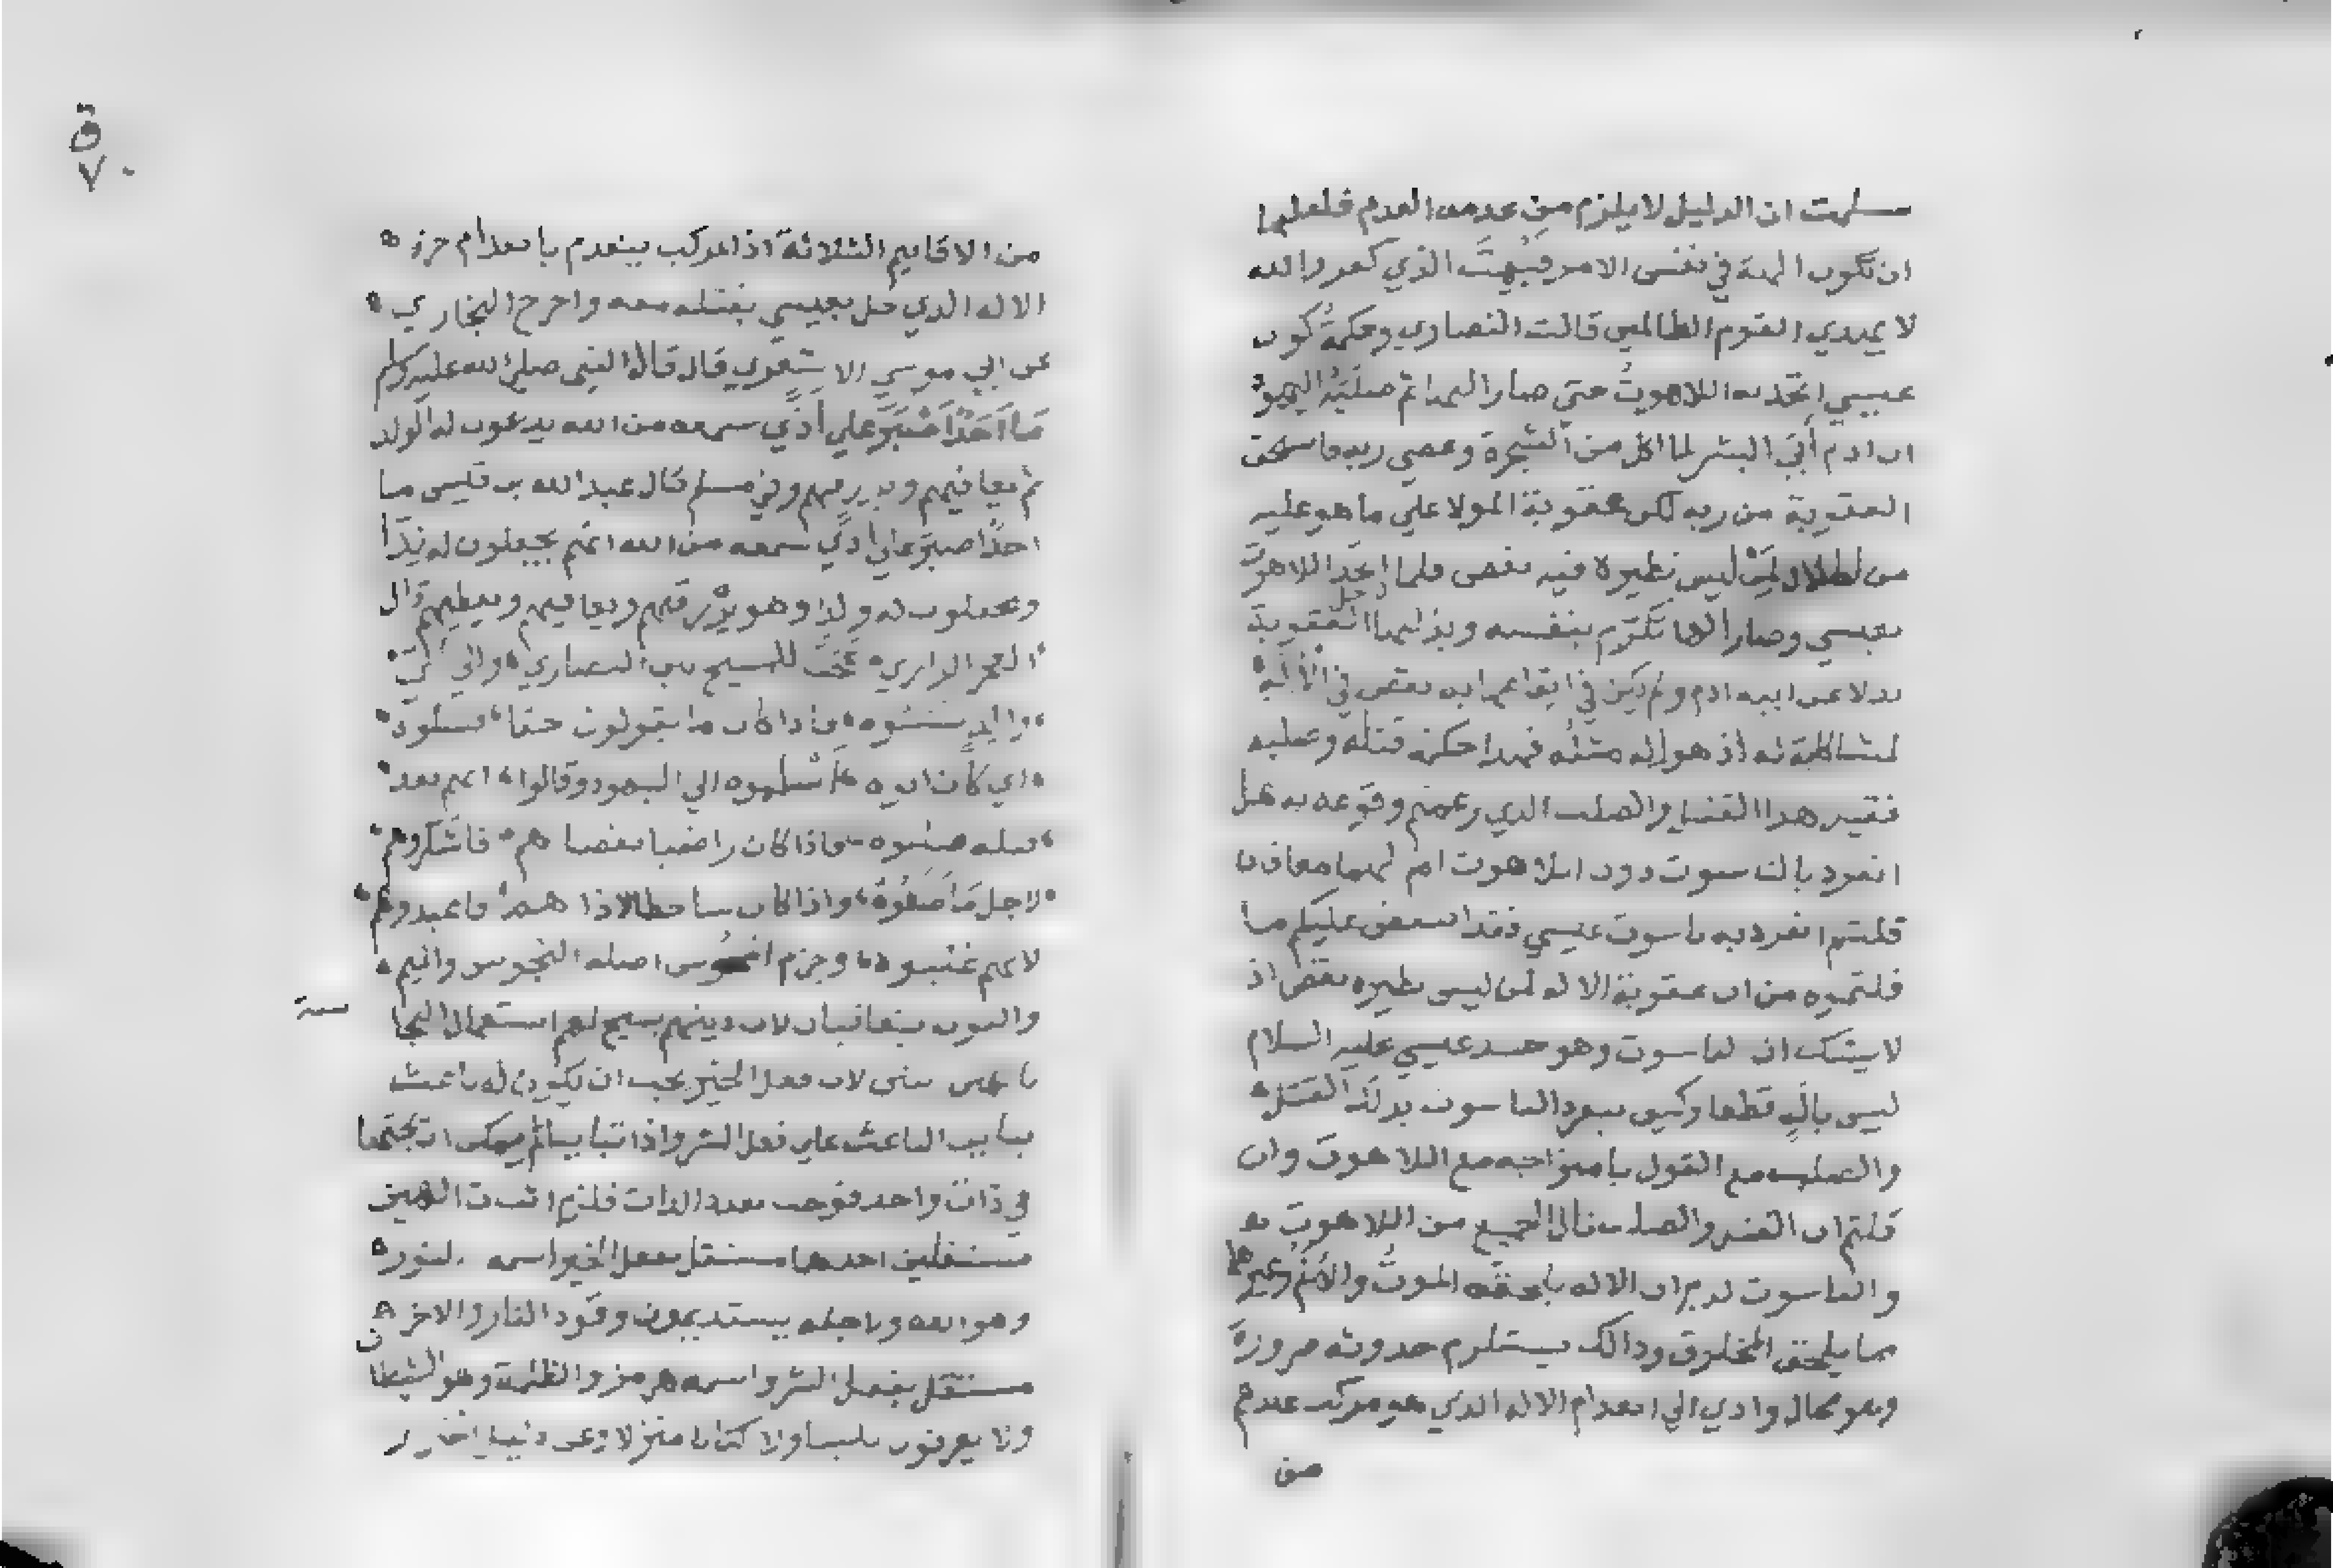 سلمت ان الدليل لا يلزم من عدمه العدم فلعلها
ان تكون الهة في نفس الامر فبهت الذي كفر والله
لا يهدي القوم الظالمين قالت النصاري وحكمة كون
عيسي اتحد به اللاهوت حتي صار الها ثم صلبته اليهود
ان ادم أبي البشر لما اكل من الشجرة وعصي ربه فاستحق
العقوبة من ربه لكن عقوبة المولا علي ما هو عليه
من ليس نظيره فيه نقص فلما اتحد اللاهوت
بعيسي وصار الها تكرم بنفسه وبذلها لاجل العقوبة
بدلا عن ابيه ادم ولم يكن في ايقاعها به نقص في
لمشاكلة له اذ هو اله مثله فهذا حكمة قتله وصلبه
فقيل هذا القتل والصلب الذي زعمتم وقوعه به هل
انفرد بالناسوت دون اللاهوت ام لهما معا فان
قلتم انفرد به ناسوت عيسي فقد انتقض عليكم ما
قلتموه من ان عقوبة الاله لمن ليس نظيره نقص اذ
لا يشك ان الناسوت وهو جسد عيسي عليه السلام
ليس باله قطعا وكيف ينفرد الناسوت بذلك القتل
والصلب مع القول بامتزاجه مع اللاهوت وان
قلتم ان القتل والصلب نال الجميع من اللاهوت
والناسوت لزم ان الاله يلحقه الموت والألم وغيرهما
مما يلحق المخلوق وذالك يستلزم حدوثه ضرورة
وهو محال وادي الي انعدام الاله الذي هو مركب عندهم
من
ق
٧٠
من الاقانيم الثلاثة اذ المركب ينعدم بانعدام جزء
الاله الذي حل بعيسي بقتله معه واخرج البخاري
عن ابي موسي الاشعري قال قال النبي صلي الله عليه وسلم
مَا أَحَدٌ أَصْبَرَ علي أذي سمعه من الله يدعون له الولد
ثم يعافيهم ويرزقهم وفي مسلم قال عبد الله بن قيس ما
احدٌ اصبر علي اذي سمعه من الله انهم يجعلون له نِدّا
ويجعلون له ولدا وهو يرزقهم ويعافيهم ويعطيهم قال
الفخر الرازي عجبا للمسيح بين النصاري والي اي
والد نسبوه فاذا كان ما يقولون حقا فسلوه
اي كان ابوه سلموه الي اليهود وقالوا انهم بعد
قتله صلبوه فاذا كان راضيا بقضا هم فاشكروهم
لاجل مَا صَنَعُوهُ واذا كان ساخطا لاذا هم فاعبدوهم
لانهم غلبوه وجزم اصله النجوس والميم
والنون يتعاقبان لان دينهم يبيح لهم استعمال النجا
سة
لان فعل الخير يجب ان يكون له باعث
يباين الباعث علي فعل الشر واذا تباينا لم يمكن ان يجتمعا
في ذات واحد فوجب تعدد الذات فلزم اثبات الهين
مستقلين احدهما مستقل بفعل الخير اسمه النور
وهو الله ولاجله يستديمون وقود النار والاخر
مستقل بفعل الشر واسمه هرمز والظلمة وهو الشيطان
ولا يعرفون نبيا ولا كتابا منزلا وعن دنيا